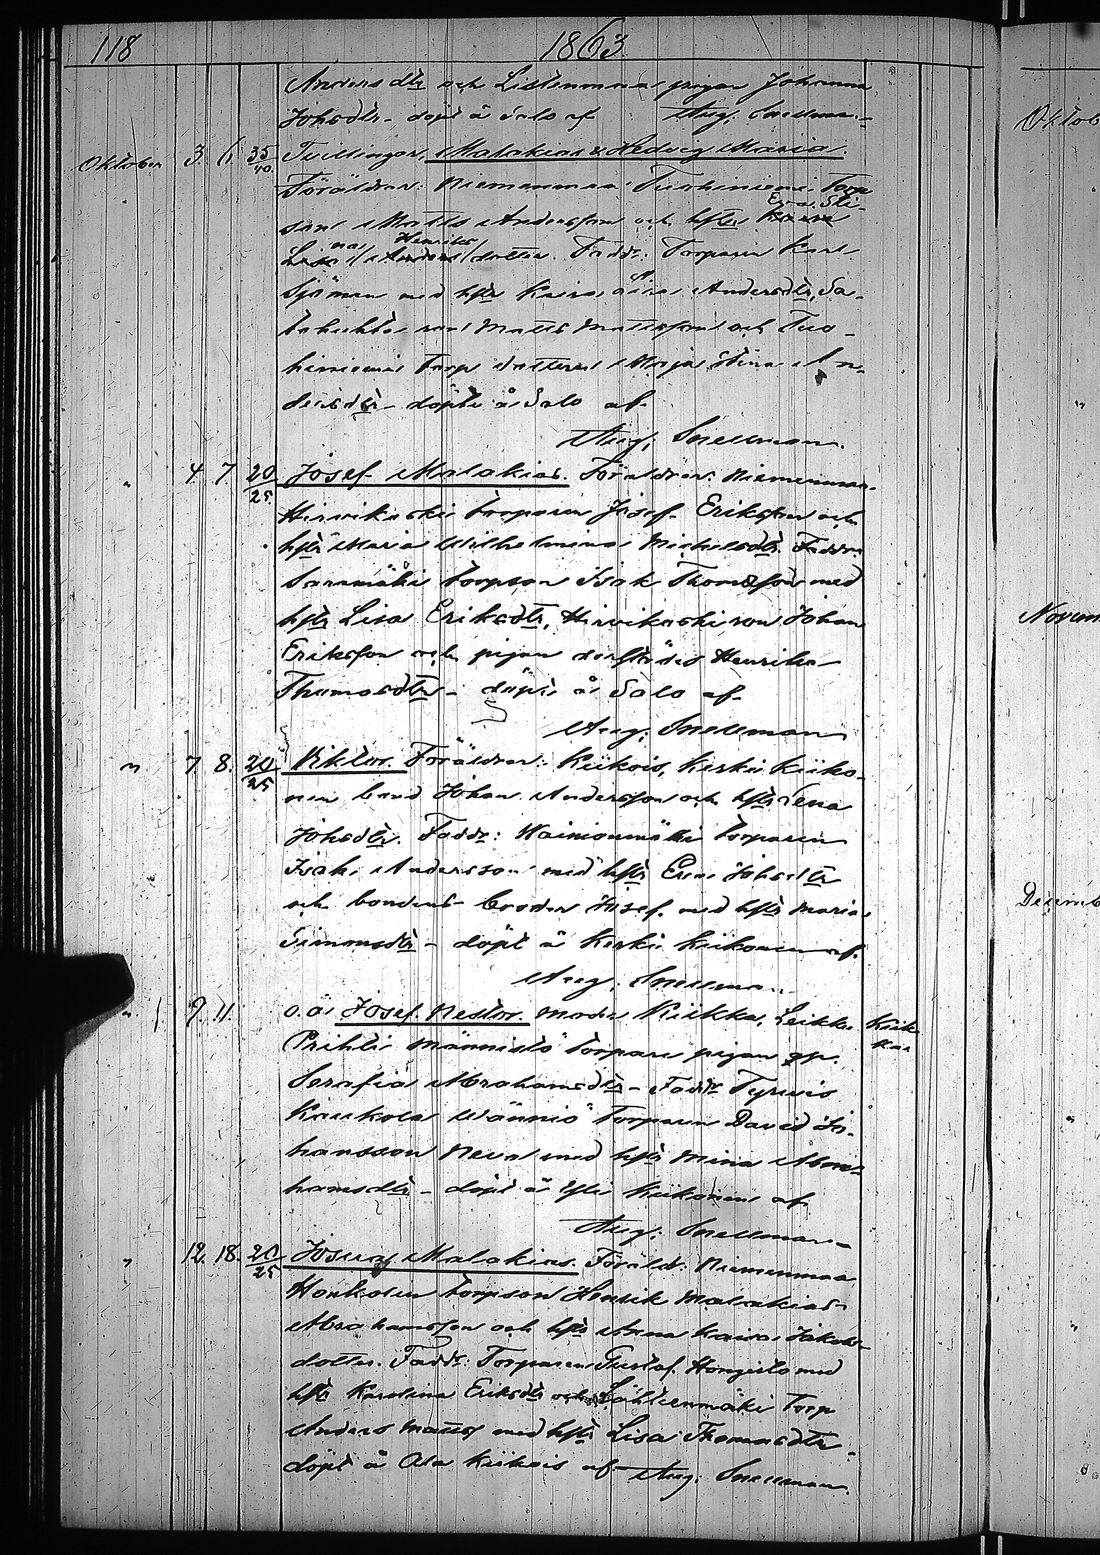 118 1863.
Andersdtr och Listenmaa pigan Johanna
Johsdtr - döpt å Salo af Aug. Snellman -
Oktober 3. 6. 35/40. Tvillingar, Malakias & Hedvig Maria.
Föräldrar: Niemenmaa Tuohiniemi Torp
son Matts Andersson och hstr Eva Sti-
na Henriks dotter. Faddr: Torparen Karl
Sjöman med hstr Kaisa Andersdtr, Sa-
son Matts Mattsson och Tuo-
hiniemi Torp dottren Maja Stina An-
dersdtr - döpte å Salo af
Aug. Snellman.
" 4 7. 20/25 Josef Malakias. Föräldrar: Niemenmaa
Hirvikoski torparen Josef Eriksson och
hstr Maria Wilhelmina Michelsdtr. Faddr:
Sarsmäki torpson Isak Thomasson med
hstr Lisa Eriksdtr, Hirvikoski son Johan
Eriksson och pigan derstädes Henrika
Thomasdtr - döpt å Salo af
Aug. Snellman
" 7. 8. 20/25 Viktor. Föräldrar: Kiikois, Keski Kiiko-
nen bond Johan Andersson och hstr Lena
Johsdtr. Faddr: Wainionmäki torparen
Isak Andersson med hstr Eva Johsdtr
och bondens broder Josef med hstr Maria
Simonsdtr - döpt å Keski Kiikonen af.
Aug. Snellman.
" 1 9. 11. o.ä. Josef Nestor. Moder Kiikka, Leikku Kiik-
Prihti Männistö torpare pigan kka
Serafia Abrahamsdtr - Faddr Tyrvis
Kaukola Wännio torparen David Jo-
hansson Neva med hstr Mina Abra-
hamsdtr - döpt å Yli Kiikonen af
Aug. Snellman -
" 12. 18. 20/25 Malakias. Föräldr: Niemenmaa
Honkolan torpson Henrik Malakias
Abrahamsson och hstr Anna Kaisa Jakobs-
dotter. Faddr: Torparen Gustaf Hongisto med
hstr Karolina Eriksdtr och Lähteenmäki Torp
Anders Mattss med hstr Lisa Thomasdtr -
döpt å Ala Kiikois af Aug. Snellman.
Oktob
"
Novem
Decemb
"
"